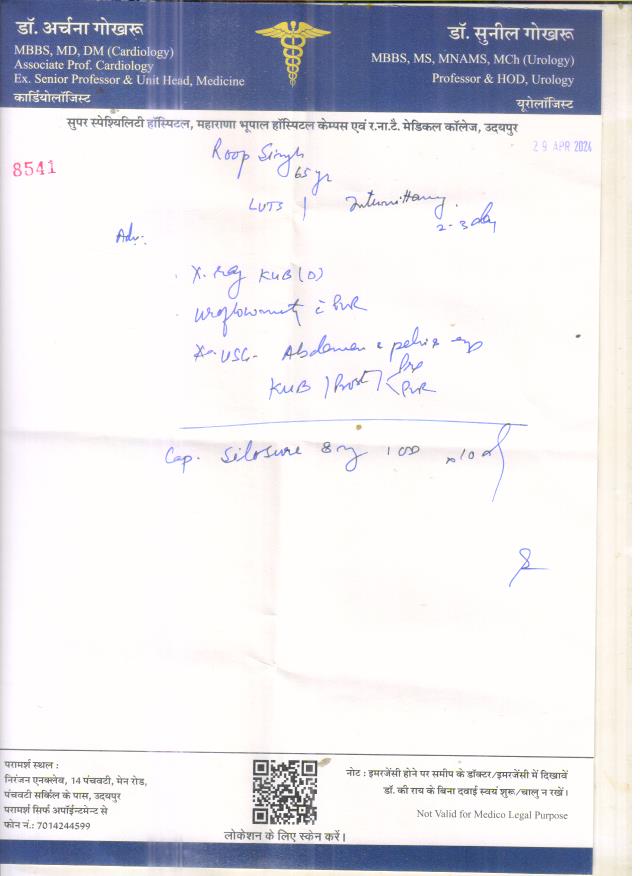 डॉ. अर्चना गोखरू
MBBS, MD, DM (Cardiology)
Associate Prof. Cardiology
Ex. Senior Professor & Unit Head, Medicine
कार्डियोलॉजिस्ट
डॉ. सुनील गोखरू
MBBS, MS, MNAMS, MCh (Urology)
Professor & HOD, Urology
यूरोलॉजिस्ट
सुपर स्पेश्यिलिटी हॉस्पिटल, महाराणा भूपाल हॉस्पिटल केम्पस एवं र.ना.टै. मेडिकल कॉलेज, उदयपुर
29 APR 2024
8541
Roop Singh
65 yr
LUTS |
2-3 day
Adv:
X-ray KUB (D)
Uroflowmetry c̄ PVR
USG- Abdomen & pelvis
KUB / Prost / < Pre
PVR
Cap. Silosure 8 mg 1 OD x 10 d
परामर्श स्थल :
निरंजन एनक्लेव, 14 पंचवटी, मेन रोड,
पंचवटी सर्किल के पास, उदयपुर
परामर्श सिर्फ अपॉईन्टमेन्ट से
फोन नं.: 7014244599
लोकेशन के लिए स्केन करें।
नोट : इमरजेंसी होने पर समीप के डॉक्टर/इमरजेंसी में दिखावें
डॉ. की राय के बिना दवाई स्वयं शुरू/चालु न रखें।
Not Valid for Medico Legal Purpose